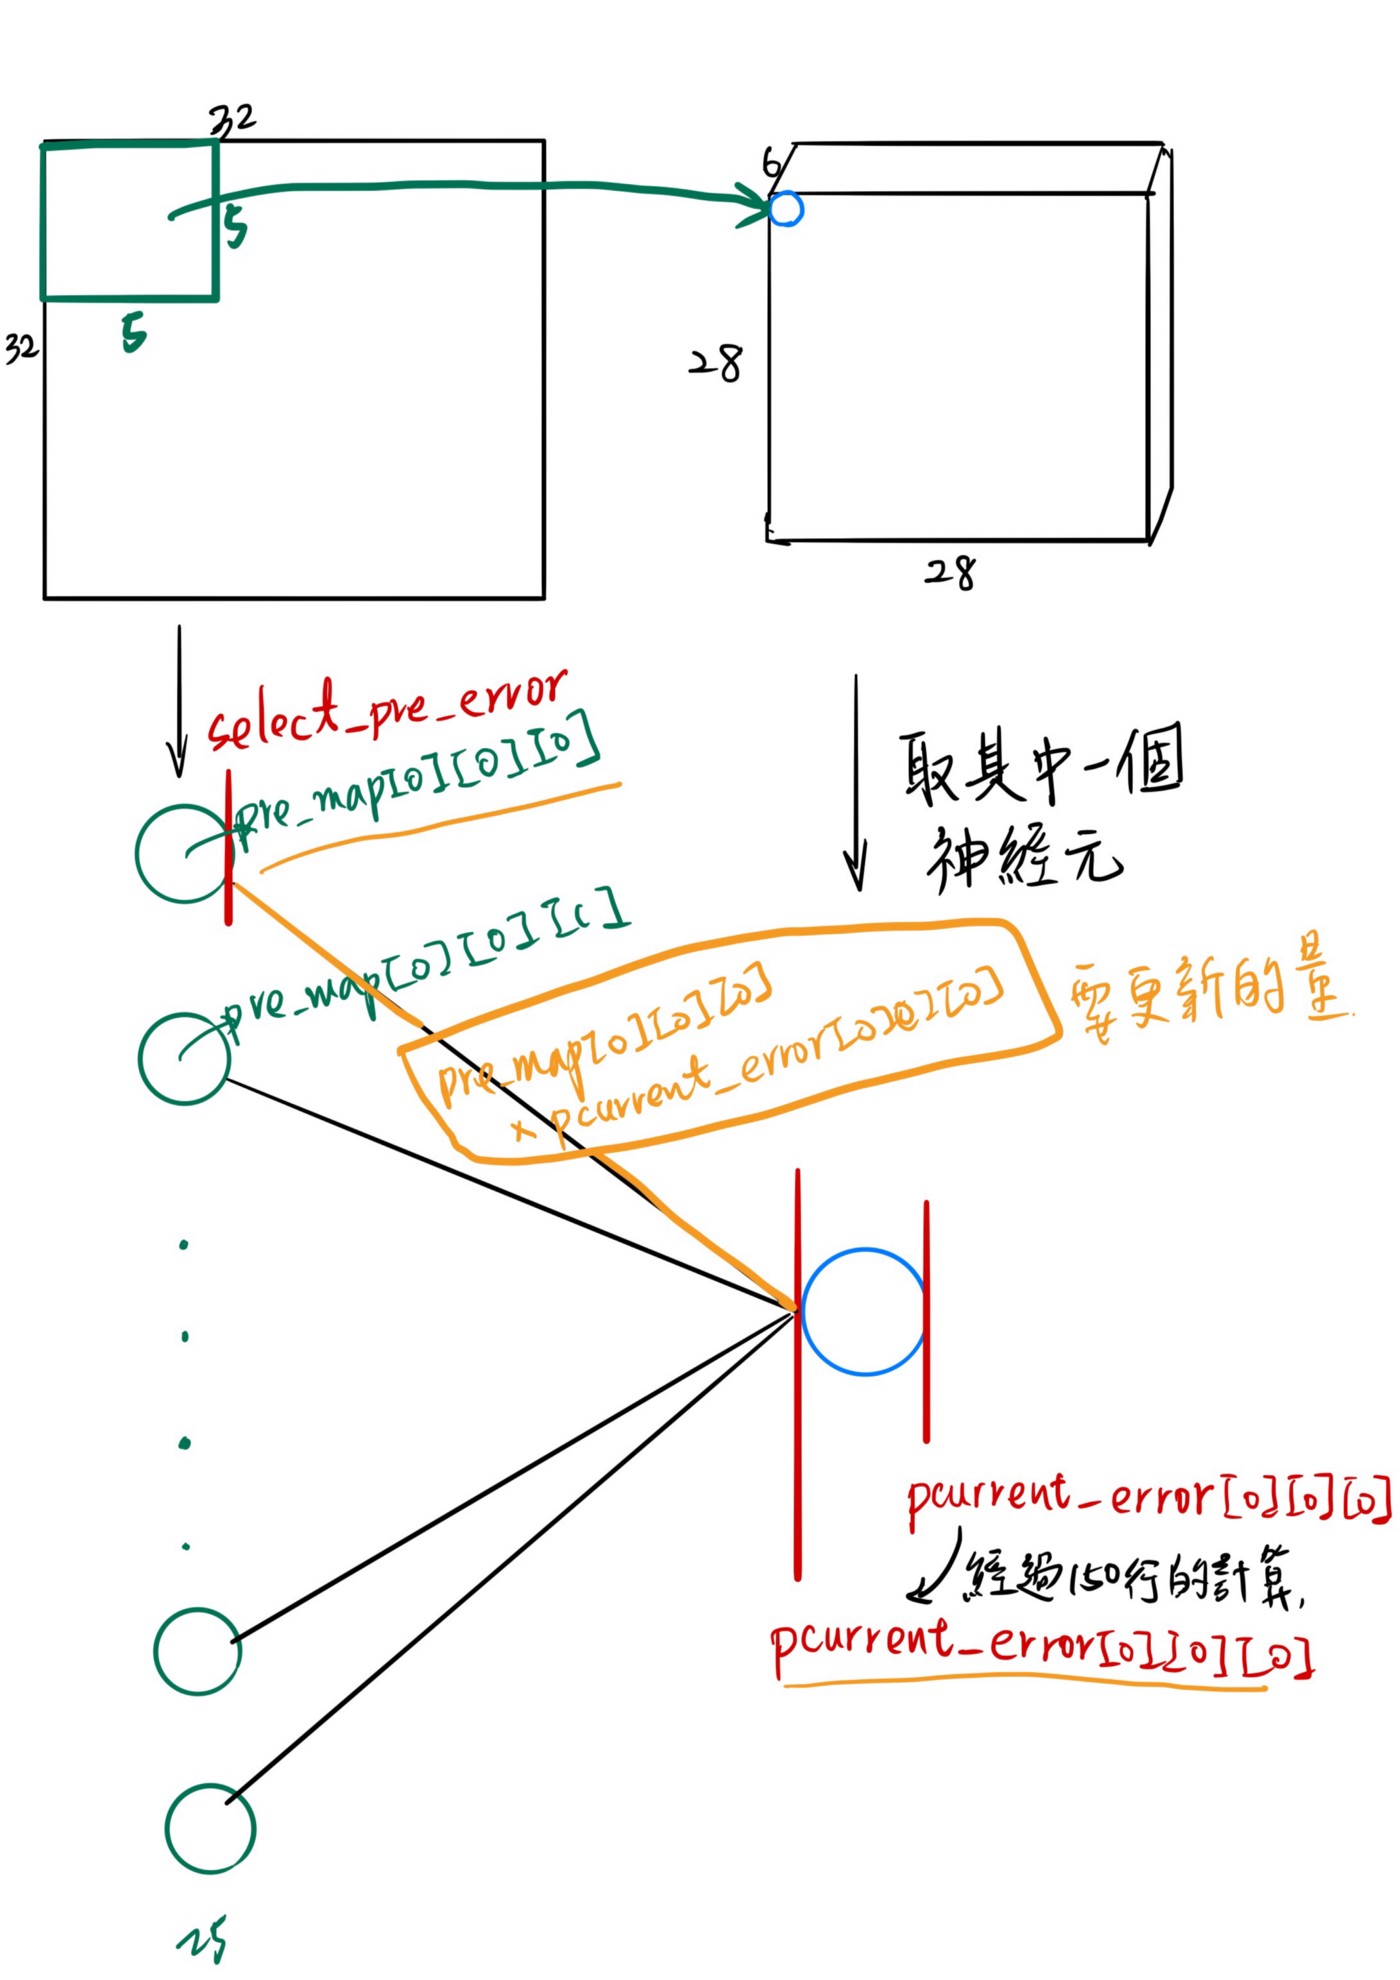 32
6
5
5
32
28
28
select_pre_error
pre_map[0][0][0]
取其中一個
神經元
pre_map[0][0][c]
pre_map[0][0][0]
× pcurrent_error[0][0][0]
需更新的量.
pcurrent_error[0][0][0]
經過150行的計算,
pcurrent_error[0][0][0]
25